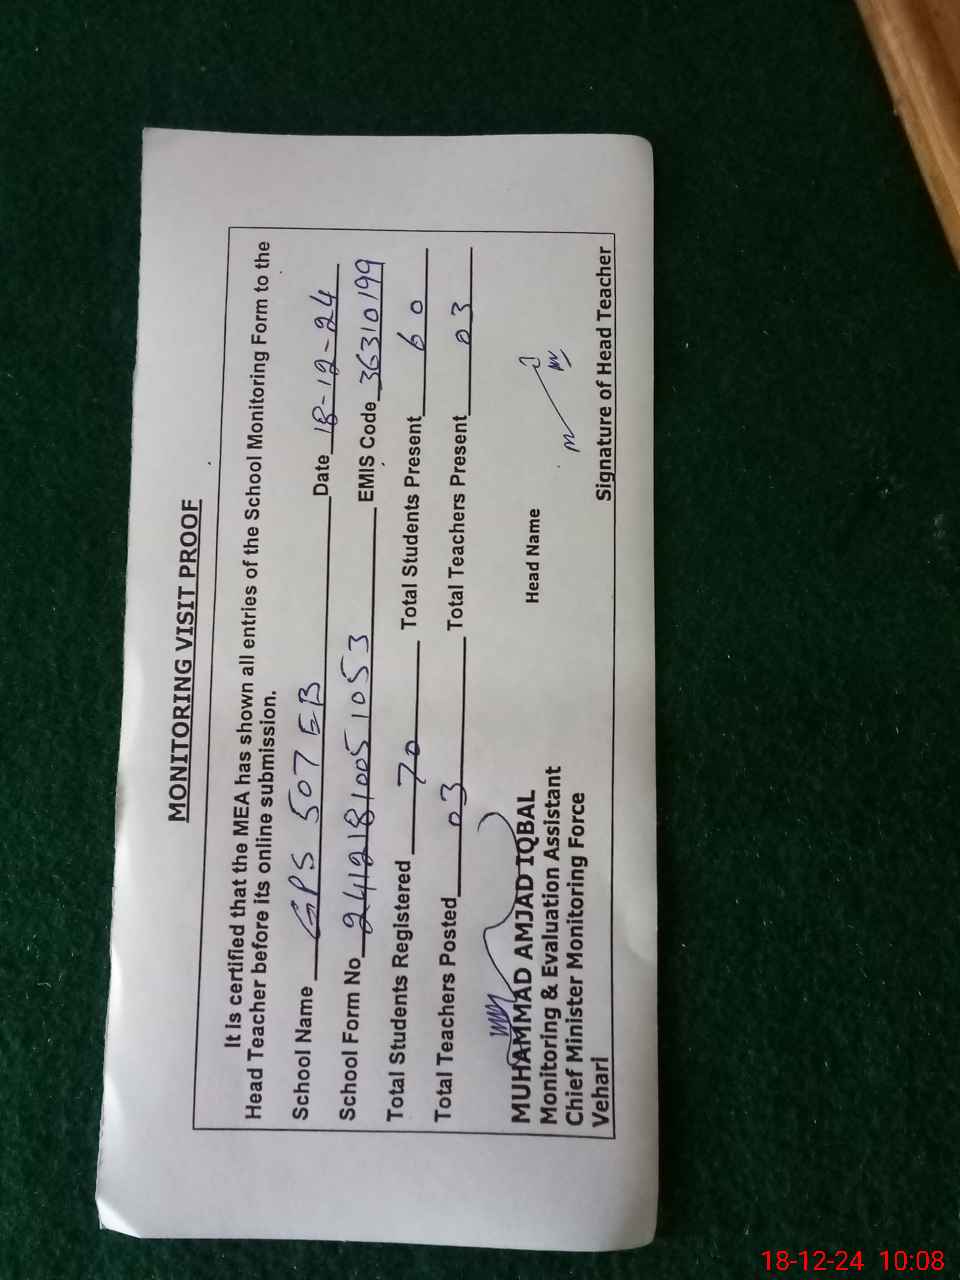 MONITORING VISIT PROOF
It is certified that the MEA has shown all entries of the School Monitoring Form to the
Head Teacher before its online submission.
School Name GPS 507 EB Date 18-12-24
School Form No 2412181005 1053 EMIS Code 36310199
Total Students Registered 70 Total Students Present 60
Total Teachers Posted 03 Total Teachers Present 03
Head Name
MUHAMMAD AMJAD IQBAL
Monitoring & Evaluation Assistant
Chief Minister Monitoring Force
Vehari
Signature of Head Teacher
18-12-24 10:08